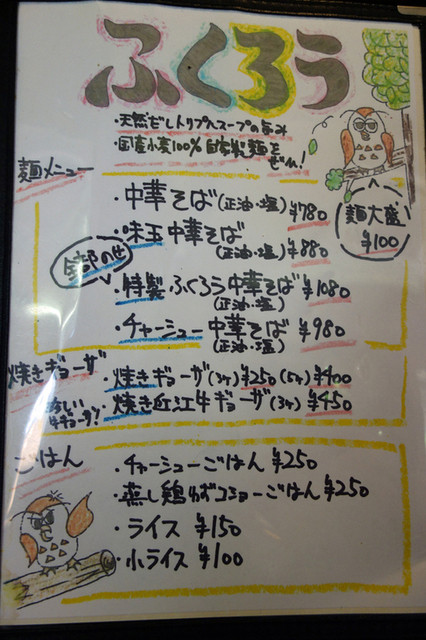 ふくろう
・天然だしトリプルスープの旨み
・国産小麦100% 自家製麺を
ぜひ!
麺メニュー
・中華そば(正油・塩) ¥780
・味玉中華そば
(正油・塩) ¥880
全部のせ
・特製ふくろう中華そば ¥1080
(正油・塩)
・チャーシュー中華そば ¥980
(正油・塩)
麺大盛
¥100
焼きギョーザ
・焼きギョーザ(3ケ)¥250(5ケ)¥400
珍しい
牛ギョーザ!
焼き近江牛ギョーザ(3ケ)¥450
ごはん
・チャーシューごはん ¥250
・蒸し鶏ゆずコショーごはん ¥250
・ライス ¥150
・小ライス ¥100